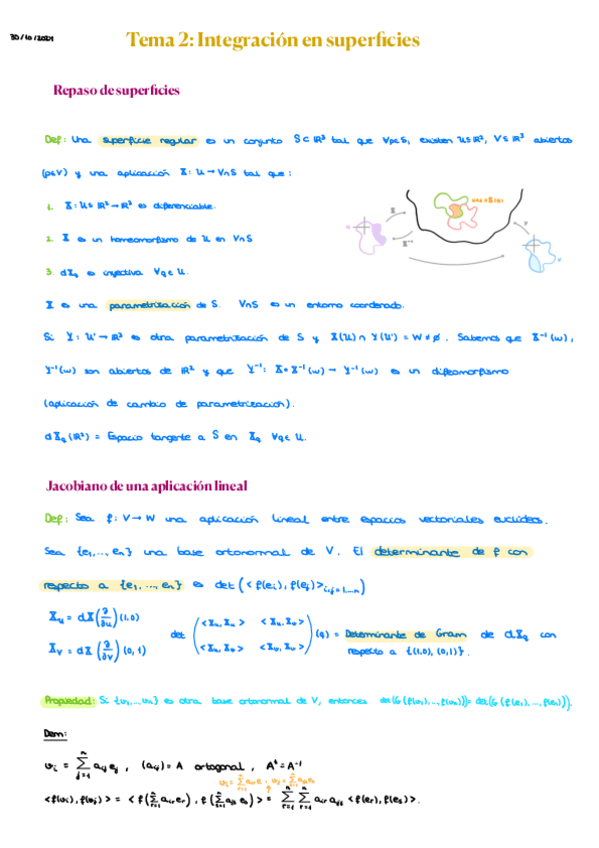 30/10/2024
Tema 2: Integración en superficies
Repaso de superficies
Def: Una superficie regular es un conjunto S⊂ℝ³ tal que ∀p∈S, existen U⊆ℝ², V⊆ℝ³ abiertos
(p∈V) y una aplicación X: U→V∩S tal que:
1. X: U⊆ℝ²→ℝ³ es diferenciable.
2. X es un homeomorfismo de U en V∩S
3. dXq es inyectiva ∀q∈U.
X es una parametrización de S. V∩S es un entorno coordenado.
Si Y: U'→ℝ³ es otra parametrización de S y X(U)∩Y(U') = W≠∅. Sabemos que X⁻¹(w),
Y⁻¹(w) son abiertos de ℝ² y que Y⁻¹∘X: X⁻¹(w)→Y⁻¹(w) es un difeomorfismo
(aplicación de cambio de parametrización).
dXq(ℝ²) = Espacio tangente a S en Xq ∀q∈U.
Jacobiano de una aplicación lineal
Def: Sea f: V→W una aplicación lineal entre espacios vectoriales euclídeos.
Sea {e₁,..., eₙ} una base ortonormal de V. El determinante de f con
respecto a {e₁, ..., eₙ} es det(<f(eᵢ), f(eⱼ)>ᵢ,ⱼ₌₁...ₙ)
Xu = dX(∂/∂u)(1,0)
Xv = dX(∂/∂v)(0,1)
det (<Xu,Xu> <Xu,Xv> <Xu,Xv> <Xv,Xv>)(q) = Determinante de Gram de dXq con
respecto a {(1,0), (0,1)}.
Propiedad: Si {v₁,...,vₙ} es otra base ortonormal de V, entonces det(G(f(v₁),...,f(vₙ))) = det(G(f(e₁),...,f(eₙ))).
Dem:
vᵢ = Σⱼ₌₁ⁿ aᵢⱼeⱼ, (aᵢⱼ) = A ortogonal, Aᵗ = A⁻¹
<f(vᵢ), f(vⱼ)> = <f(Σᵣ₌₁ⁿ aᵢᵣeᵣ), f(Σₛ₌₁ⁿ aⱼₛeₛ)> = Σᵣ₌₁ⁿ Σₛ₌₁ⁿ aᵢᵣ aⱼₛ <f(eᵣ), f(eₛ)>.